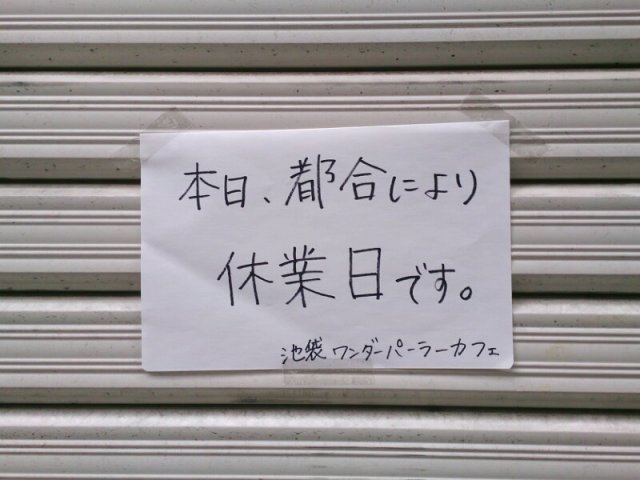 本日、都合により
休業日です。
池袋 ワンダーパーラーカフェ